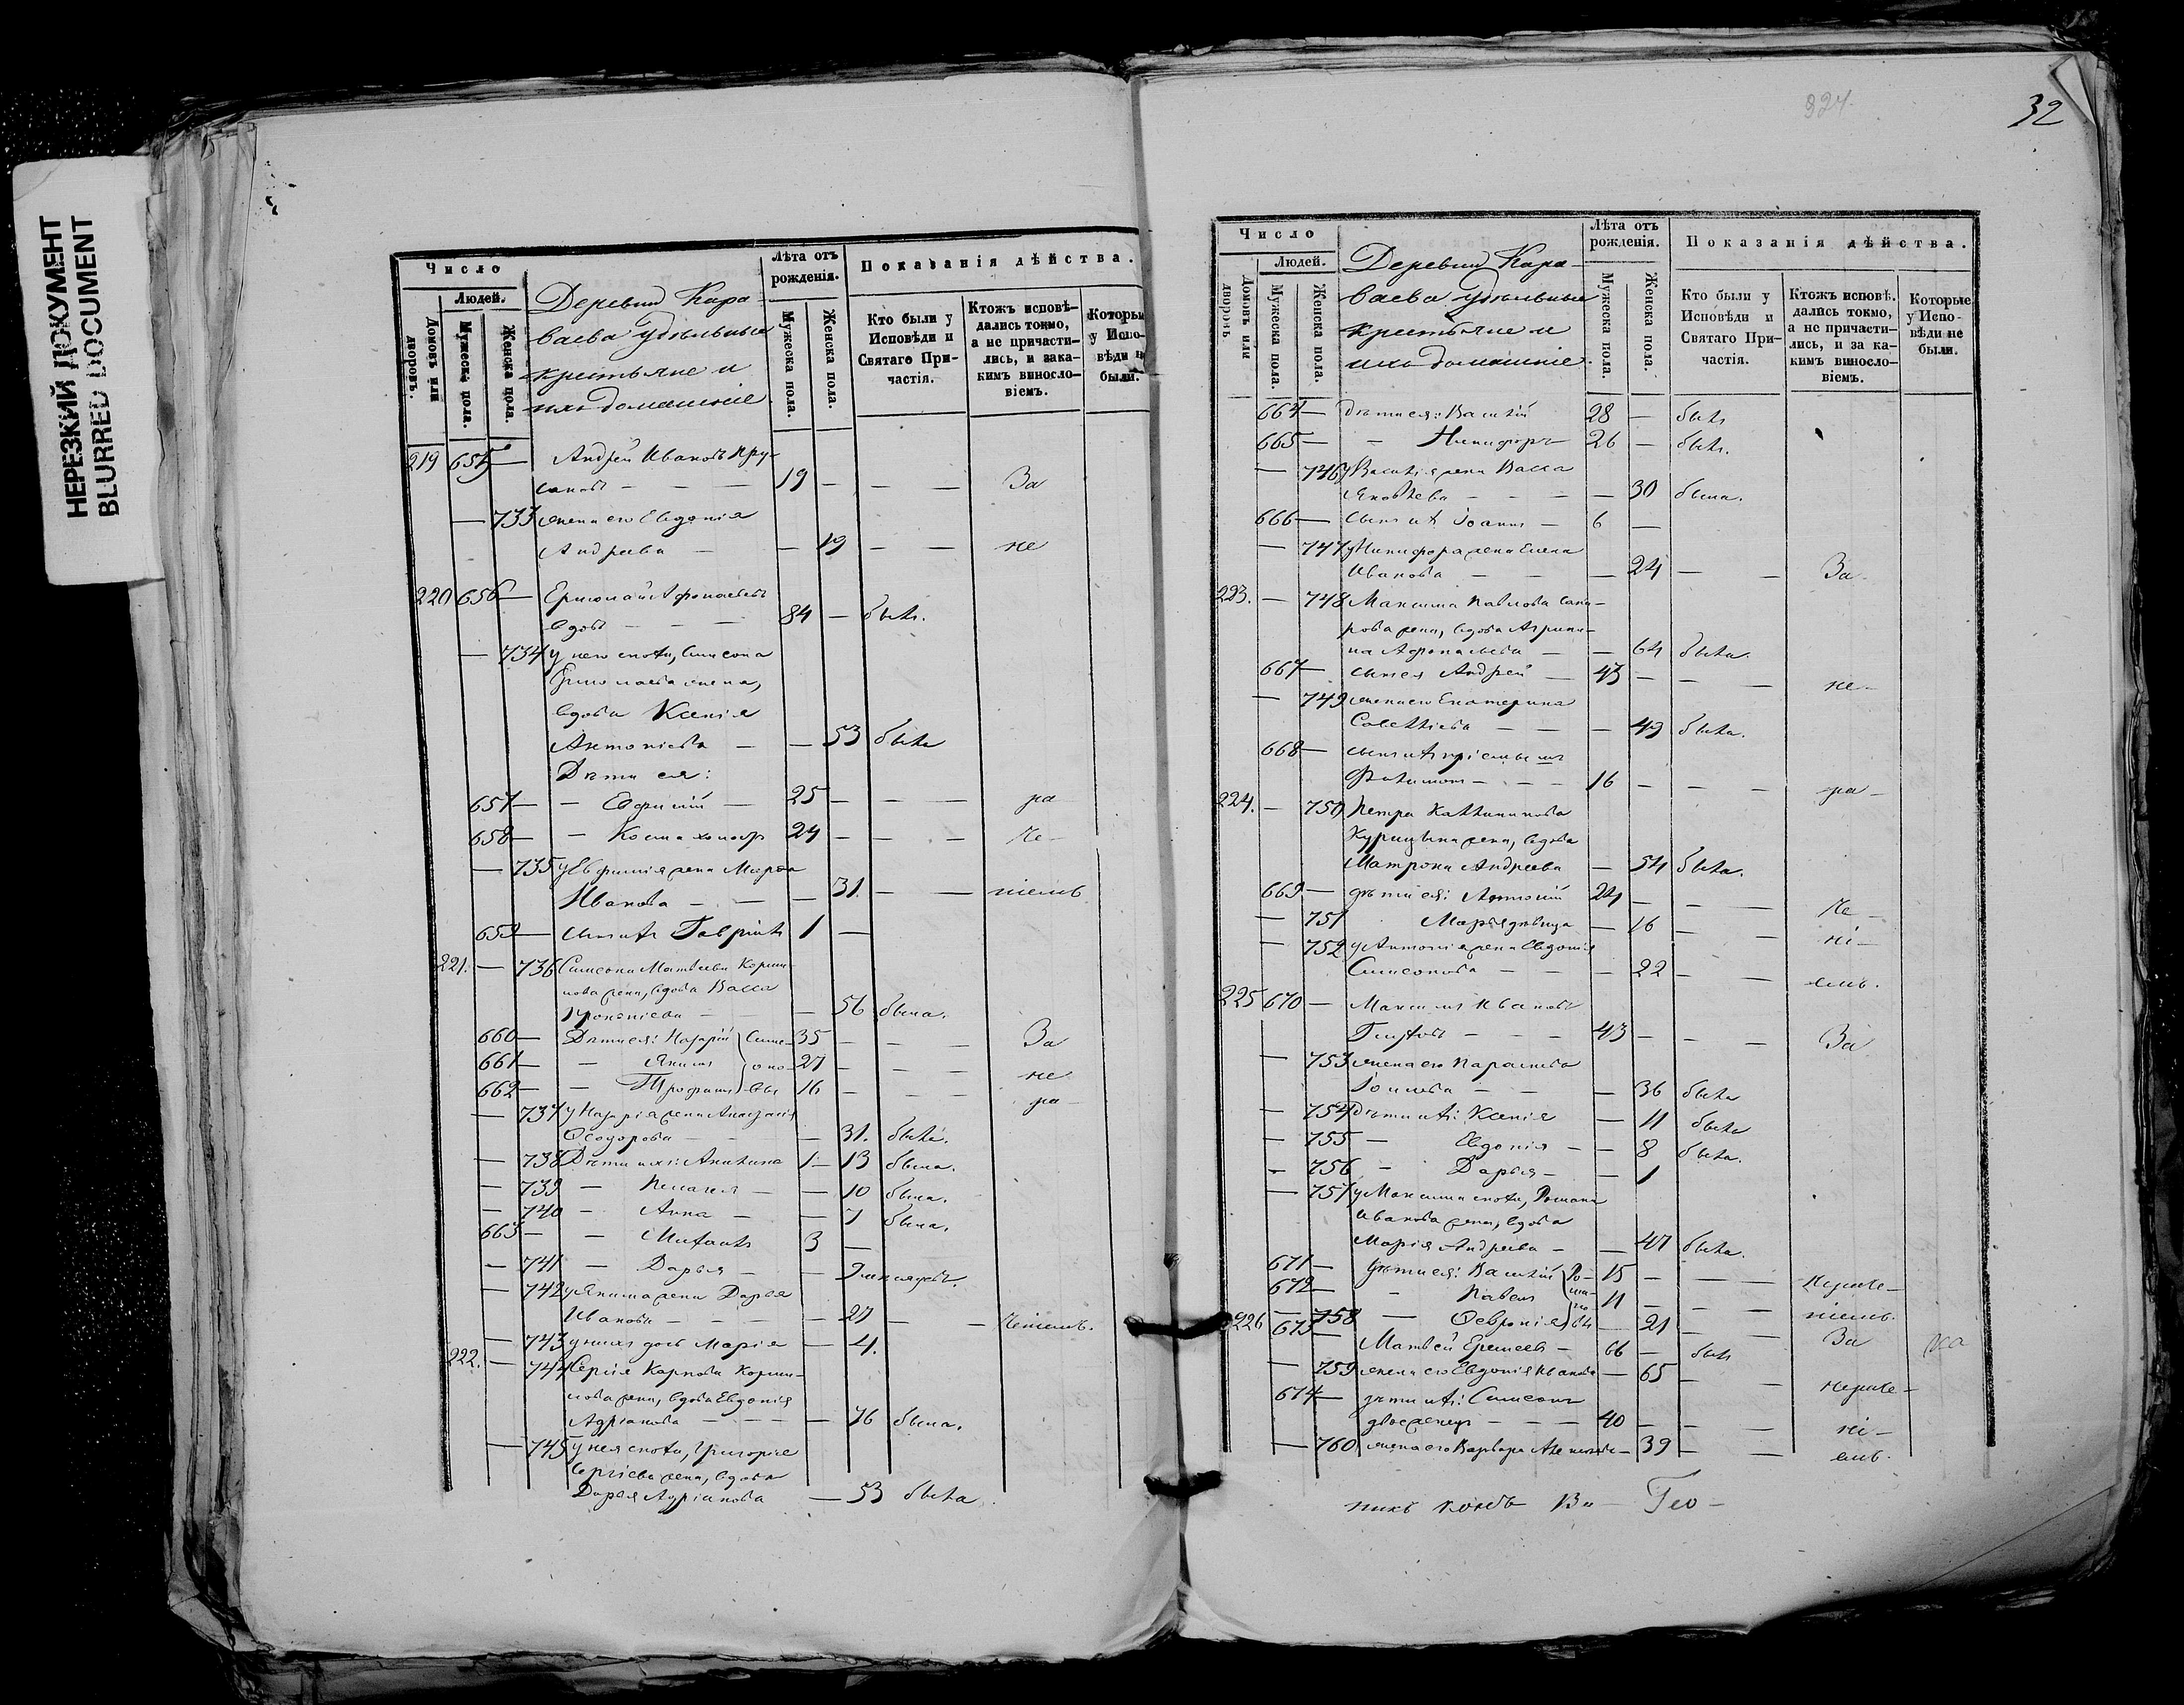 НЕРЕЗКИЙ ДОКУМЕНТ
BLURRED DOCUMENT
Число
Людей.
Домовъ или дворовъ.
Мужеска пола.
Женска пола.
Деревни Кара-
ваева удѣльные
крестьяне и
ихъ домашніе.
Лѣта отъ рожденія.
Мужеска пола.
Женска пола.
Показанія дѣйства.
Кто были у Исповѣди и Святаго Причастія.
Ктожъ исповѣдались токмо, а не причастились, и закакимъ винословіемъ.
Которы у Испо- вѣди н были.
219 655 — Андрей Ивановъ
— — — 19 — — — За
— 733 жена его Евдокія
Андреева — — 19 — — не
220 656 — Ермолай Афонасьевъ
вдовъ — — — 84 — былъ.
— 734 у него сноха, Симеона
Ермолаева жена,
вдова Ксенія
Антоніева — — 53 была
Дѣти ея:
657 — — Евфимій — 25 — — — ра
658 — — Косма холостъ 24 — — — че-
— 735 у Евфимія жена Марѳа
Иванова — — — 31. — — ніемъ
659 — сынъ ихъ Гавріилъ 1 —
221. — 736 Симеона Матвеева
жена, вдова Васса
— — 56 была.
660 — Дѣти ея: Назарій Симе- 35 — — — За
661 — — Якимъ оно- 27 — — — не
662 — — Трофимъ вы 16 — — — ра-
— 737 у Назарія жена Анастасія
Ѳеодорова — — — 31. была.
— 738 Дѣти ихъ: Акилина — 13 была.
— 739 — Пелагея — — 10 была.
— 740 — Анна — — 7 была.
663 — — Михаилъ 3 —
— 741 — Дарья — —
— 742 у Якима жена Дарья
Иванова — — — — 27 — — ченіемъ.
— 743 у нихъ дочь Марія — 4.
222. — 744 Сергія Карпова
жена, вдова Евдокія
Адріанова — — — — 76 была.
— 745 у нея сноха, Григорія
Сергіева жена, вдова
Дарья Адріанова — 53 была.
324.
32
Число
Людей.
Домовъ или дворовъ
Мужеска пола.
Женска пола.
Деревни Кара-
ваева удѣльные
крестьяне и
ихъ домашніе.
Лѣта отъ рожденія.
Мужеска пола.
Женска пола.
Показанія дѣйства.
Кто были у Исповѣди и Святаго Причастія.
Ктожъ исповѣ. дались токмо, а не причастились, и за какимъ винословіемъ.
Которые у Исповѣди не были.
664 — дѣти ея: Василій 28 — былъ
665 — — Никифоръ 26 — былъ.
— 746 у Василія жена Васса
Яковлева — — — — 30 была.
666 — сынъ ихъ Іоаннъ — 6 —
— 747 у Никифора жена Елена
Иванова — — — 24 — — За-
223. — 748 Максима Павлова
жена, вдова Агрипи-
на Афонасьева — — 64 была.
667 — сынъ ея Андрей — 43 — — — не-
— 749 жена его Екатерина
Савеліева — — — 49 была.
668 — сынъ ихъ пріемышъ
Филимонъ — — — 16 — — — ра-
224. — 750 Петра Каллиникова
жена, вдова
Матрона Андреева — 54 была.
669 — дѣти ея: Антоній 24 — — — че-
— 751 Марья дѣвица — 16 — — ні-
— 752 у Антонія жена Евдокія
Симеонова — — — 22 — — емъ.
225 670 — Максимъ Ивановъ
— — — 43 — — — За
— 753 жена его Параскева
— — 36 была
— 754 дѣти ихъ: Ксенія — 11 была
— 755 — Евдокія — — 8 была.
— 756 — Дарья — — 1
— 757 у Максима сноха, Романа
Иванова жена, вдова
Марія Андреева — — 47 была.
671 — Дѣти ея: Василій Ро- 15 — — — нераче-
672 — — Павелъ ма- 11 — — — ніемъ.
— 758 — Ѳевронія но- вы — 21 — — За
226 673 — Матвей Еремеевъ — 66 — былъ
— 759 жена его Евдокія Иванова — 65 — — нераче-
674 — дѣти ихъ: Симеонъ
двоеженецъ — — — 40 — — — ні-
— 760 жена его Варвара — 39 — — емъ.